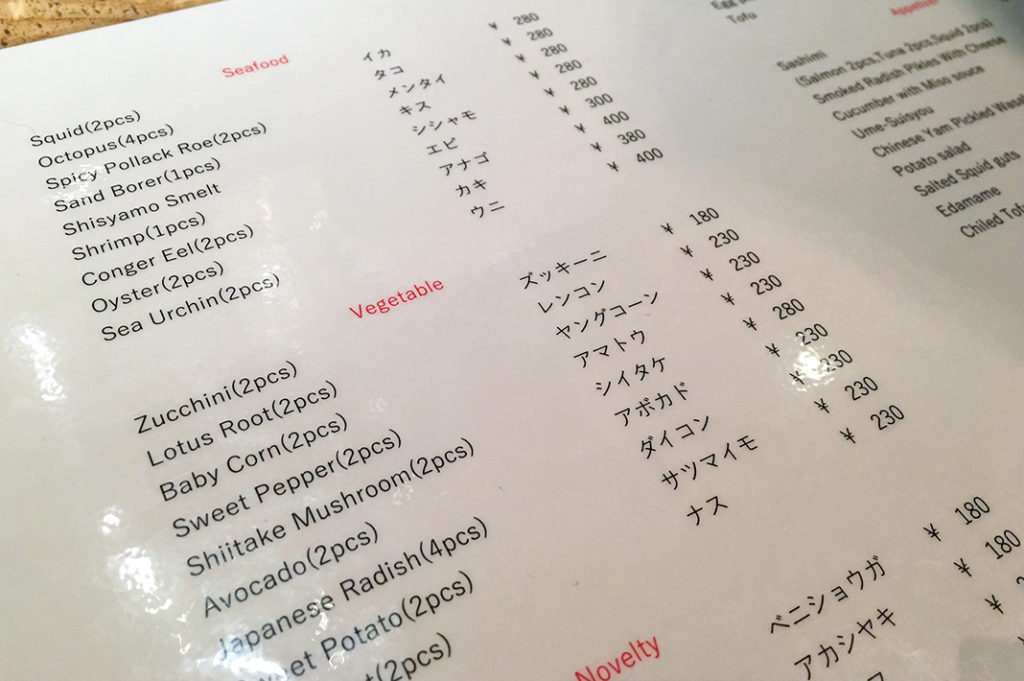 Seafood
Squid(2pcs) イカ ¥ 280
Octopus(4pcs) タコ ¥ 280
Spicy Pollack Roe(2pcs) メンタイ ¥ 280
Sand Borer(1pcs) キス ¥ 280
Shisyamo Smelt シシャモ ¥ 280
Shrimp(1pcs) エビ ¥ 300
Conger Eel(2pcs) アナゴ ¥ 400
Oyster(2pcs) カキ ¥ 380
Sea Urchin(2pcs) ウニ ¥ 400
Vegetable
Zucchini(2pcs) ズッキーニ ¥ 180
Lotus Root(2pcs) レンコン ¥ 230
Baby Corn(2pcs) ヤングコーン ¥ 230
Sweet Pepper(2pcs) アマトウ ¥ 230
Shiitake Mushroom(2pcs) シイタケ ¥ 280
Avocado(2pcs) アボカド ¥ 230
Japanese Radish(4pcs) ダイコン ¥ 230
Potato(2pcs) サツマイモ ¥ 230
(2pcs) ナス ¥ 230
Novelty
ベニショウガ ¥ 180
アカシヤキ ¥ 180
¥
Tofu
Sashimi
(Salmon 2pcs,Tuna 2pcs,Squid 2pcs)
Smoked Radish Pikles With Cheese
Cucumber with Miso souce
Ume-Suisyou
Chinese Yam Pickled
Potato salad
Salted Squid guts
Edamame
Chiled